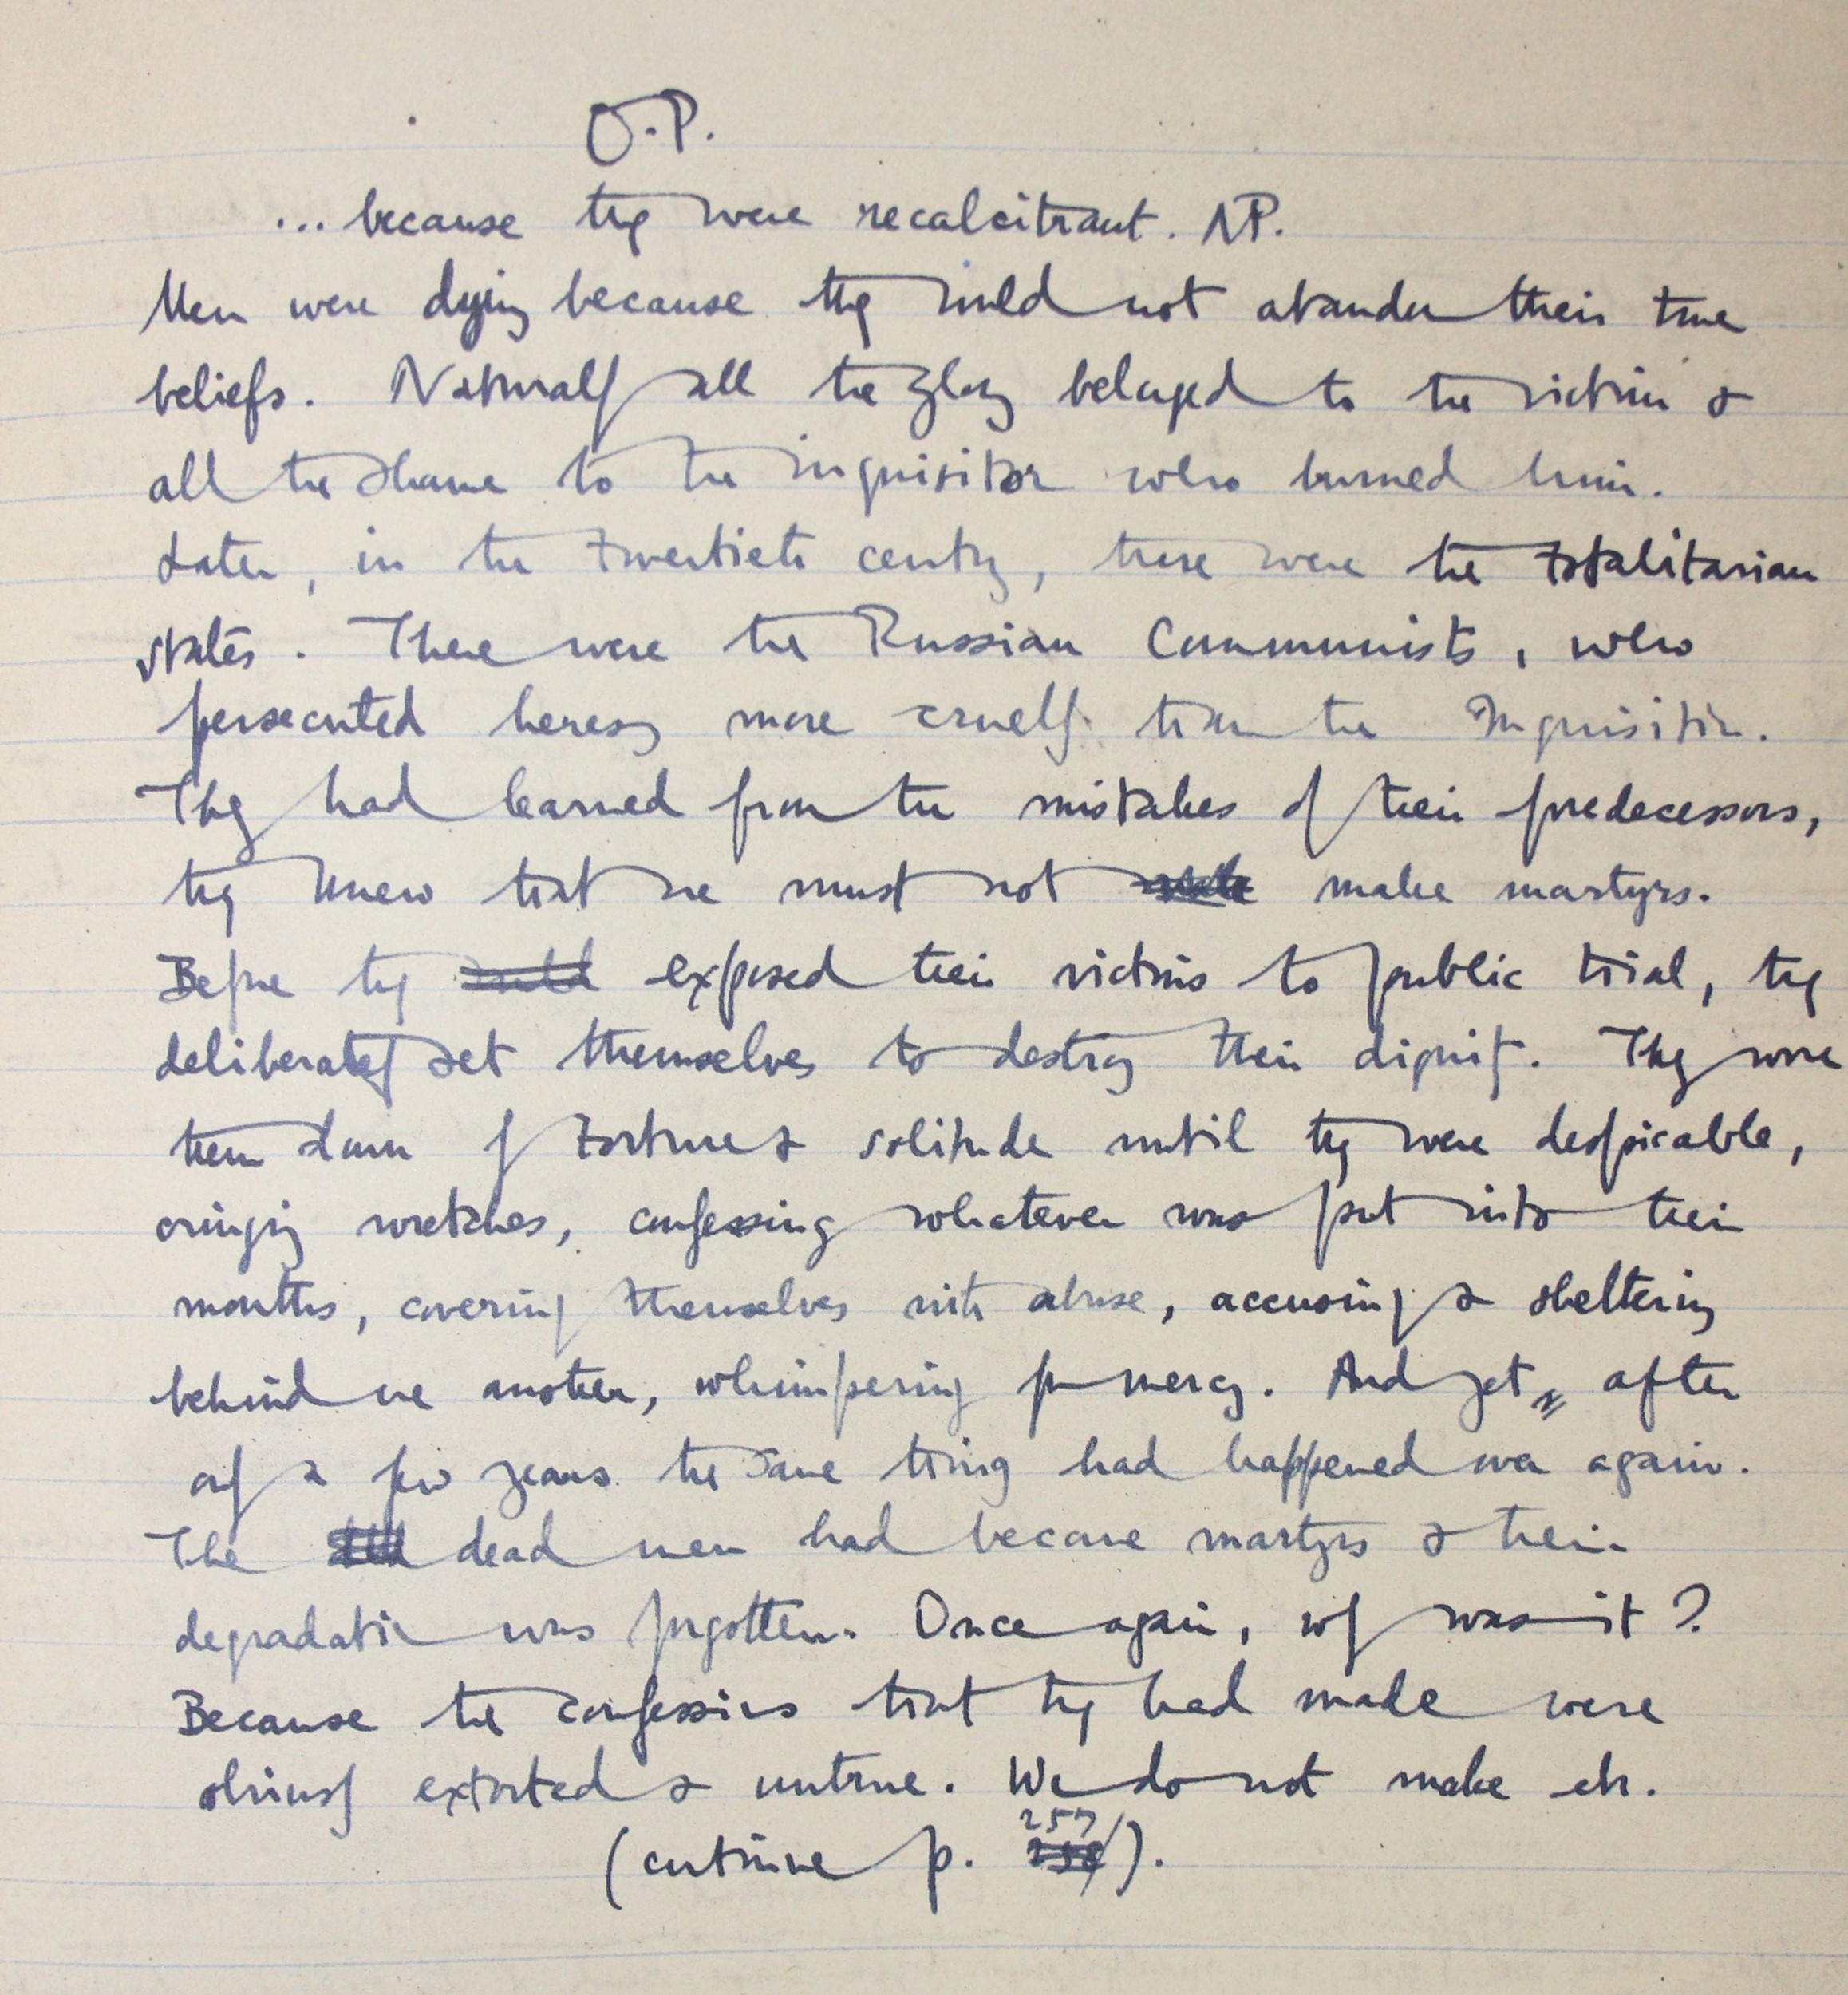 O.P.
... because they were recalcitrant. NP.
Men were dying because they would not abandon their true
beliefs. Naturally all the glory belonged to the victim &
all the shame to the inquisitor who burned him.
Later, in the twentieth century, there were the totalitarian
states. There were the Russian Communists, who
persecuted heresy more cruelly than the Inquisition.
They had learned from the mistakes of their predecessors,
they knew that one must not make martyrs.
Before they exposed their victims to public trial, they
deliberately set themselves to destroy their dignity. They wore
them down by torture & solitude until they were despicable,
cringing wretches, confessing whatever was put into their
mouths, covering themselves with abuse, accusing & sheltering
behind one another, whimpering for mercy. And yet after
only a few years the same thing had happened over again.
The dead men had become martyrs & their
degradation was forgotten. Once again, why was it?
Because the confessions that they had made were
obviously extorted & untrue. We do not make etc.
(continue p. 257).